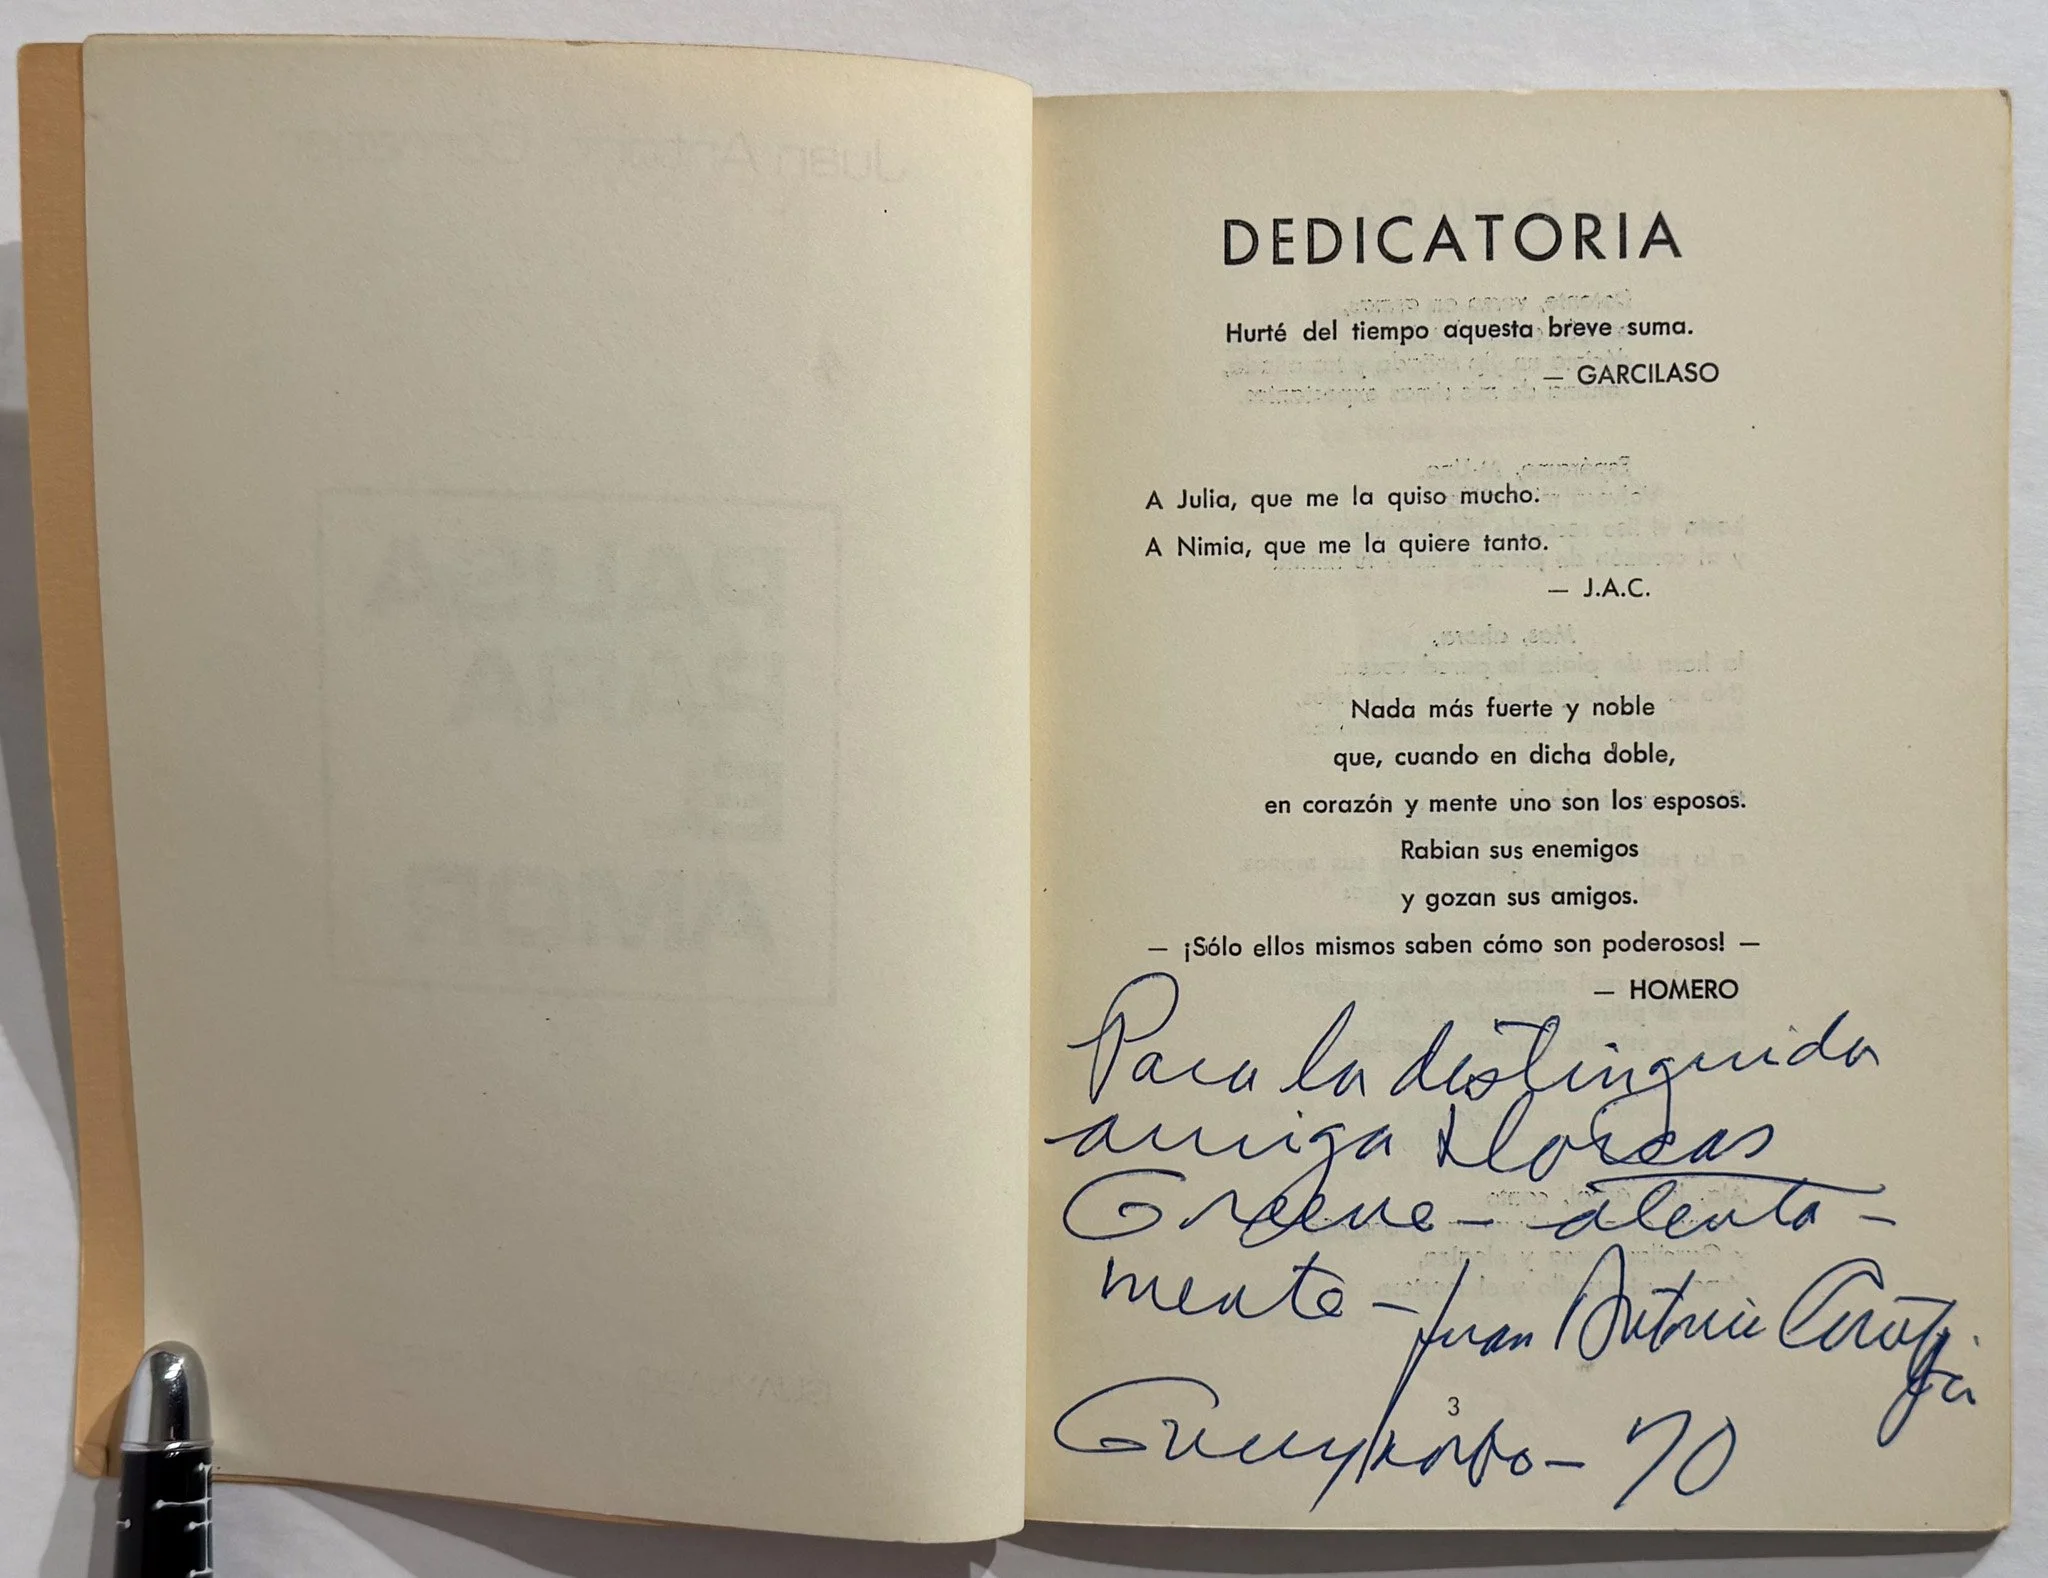 DEDICATORIA
Hurté del tiempo aquesta breve suma.
— GARCILASO
A Julia, que me la quiso mucho.
A Nimia, que me la quiere tanto.
— J.A.C.
Nada más fuerte y noble
que, cuando en dicha doble,
en corazón y mente uno son los esposos.
Rabian sus enemigos
y gozan sus amigos.
— ¡Sólo ellos mismos saben cómo son poderosos! —
— HOMERO
Para la distinguida
amiga Dorcas
Greene — atenta -
mente — Juan Antonio
3
— 70